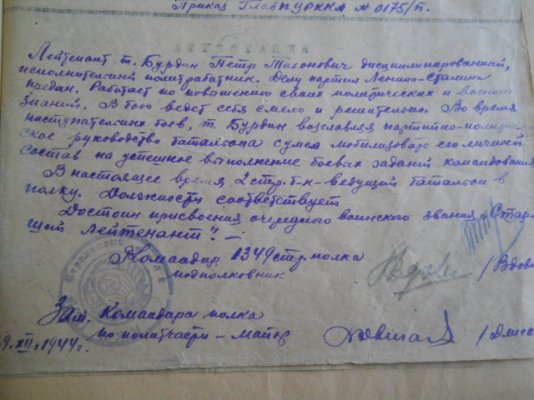 Приказ ГлавПУРККА № 0175/п.
Лейтенант т. Бурдин Петр Тихонович дисциплинированный,
исполнительный политработник. Делу партии Ленина-Сталина
предан. Работает по повышению своих политических и военных
знаний. В бою ведет себя смело и решительно. Во время
наступательных боев, т. Бурдин возглавляя партийно-полити-
ческое руководство батальона сумел мобилизовать его личный
состав на успешное выполнение боевых заданий командования
В настоящее время 2 стр. б-н - ведущий батальон в
полку. Должности соответствует
Достоин присвоения очередного воинского звания „Стар-
ший Лейтенант". —
Командир 1349 стр. полка
подполковник /Вдов
Зам. Командира полка
по политчасти - майор
9.XII.1944г.